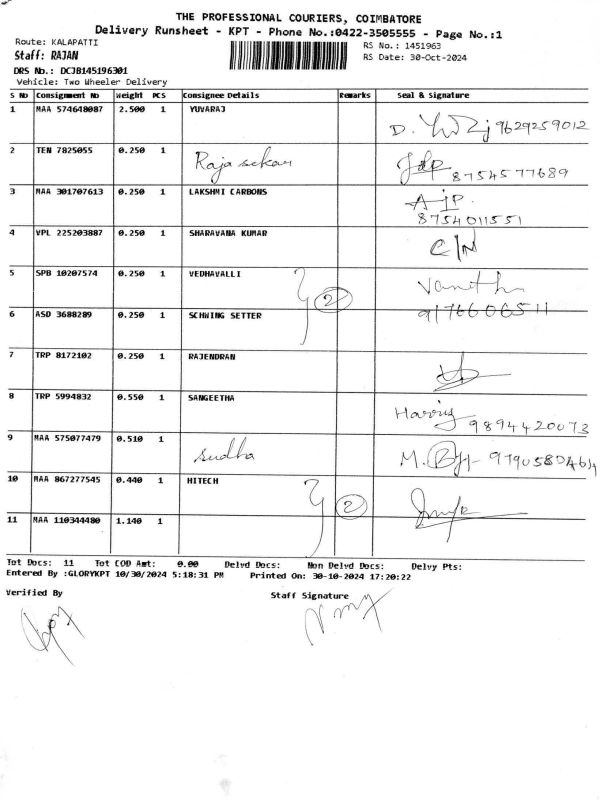 THE PROFESSIONAL COURIERS, COIMBATORE
Delivery Runsheet - KPT - Phone No.:0422-3505555 - Page No.:1
Route: KALAPATTI
RS No.: 1451963
Staff: RAJAN
RS Date: 30-Oct-2024
DRS No.: DCJB145196301
Vehicle: Two Wheeler Delivery
S No Consignment No Weight PCS Consignee Details Remarks Seal & Signature
1 MAA 574648087 2.500 1 YUVARAJ
9629259012
2 TEN 7825055 0.250 1 Rajasekar
8754577689
3 MAA 301707613 0.250 1 LAKSHMI CARBONS
8754011551
4 VPL 225203887 0.250 1 SHARAVANA KUMAR
C/N
5 SPB 10207574 0.250 1 VEDHAVALLI
2
9176606511
6 ASD 3688289 0.250 1 SCHWING SETTER
7 TRP 8172102 0.250 1 RAJENDRAN
8 TRP 5994832 0.550 1 SANGEETHA
9894420073
9 MAA 575077479 0.510 1 sudha
10 MAA 867277545 0.440 1 HITECH
2
11 MAA 110344480 1.140 1
Tot Docs: 11 Tot COD Amt: 0.00 Delvd Docs: Non Delvd Docs: Delvy Pts:
Entered By :GLORYKPT 10/30/2024 5:18:31 PM Printed On: 30-10-2024 17:20:22
Verified By
Staff Signature